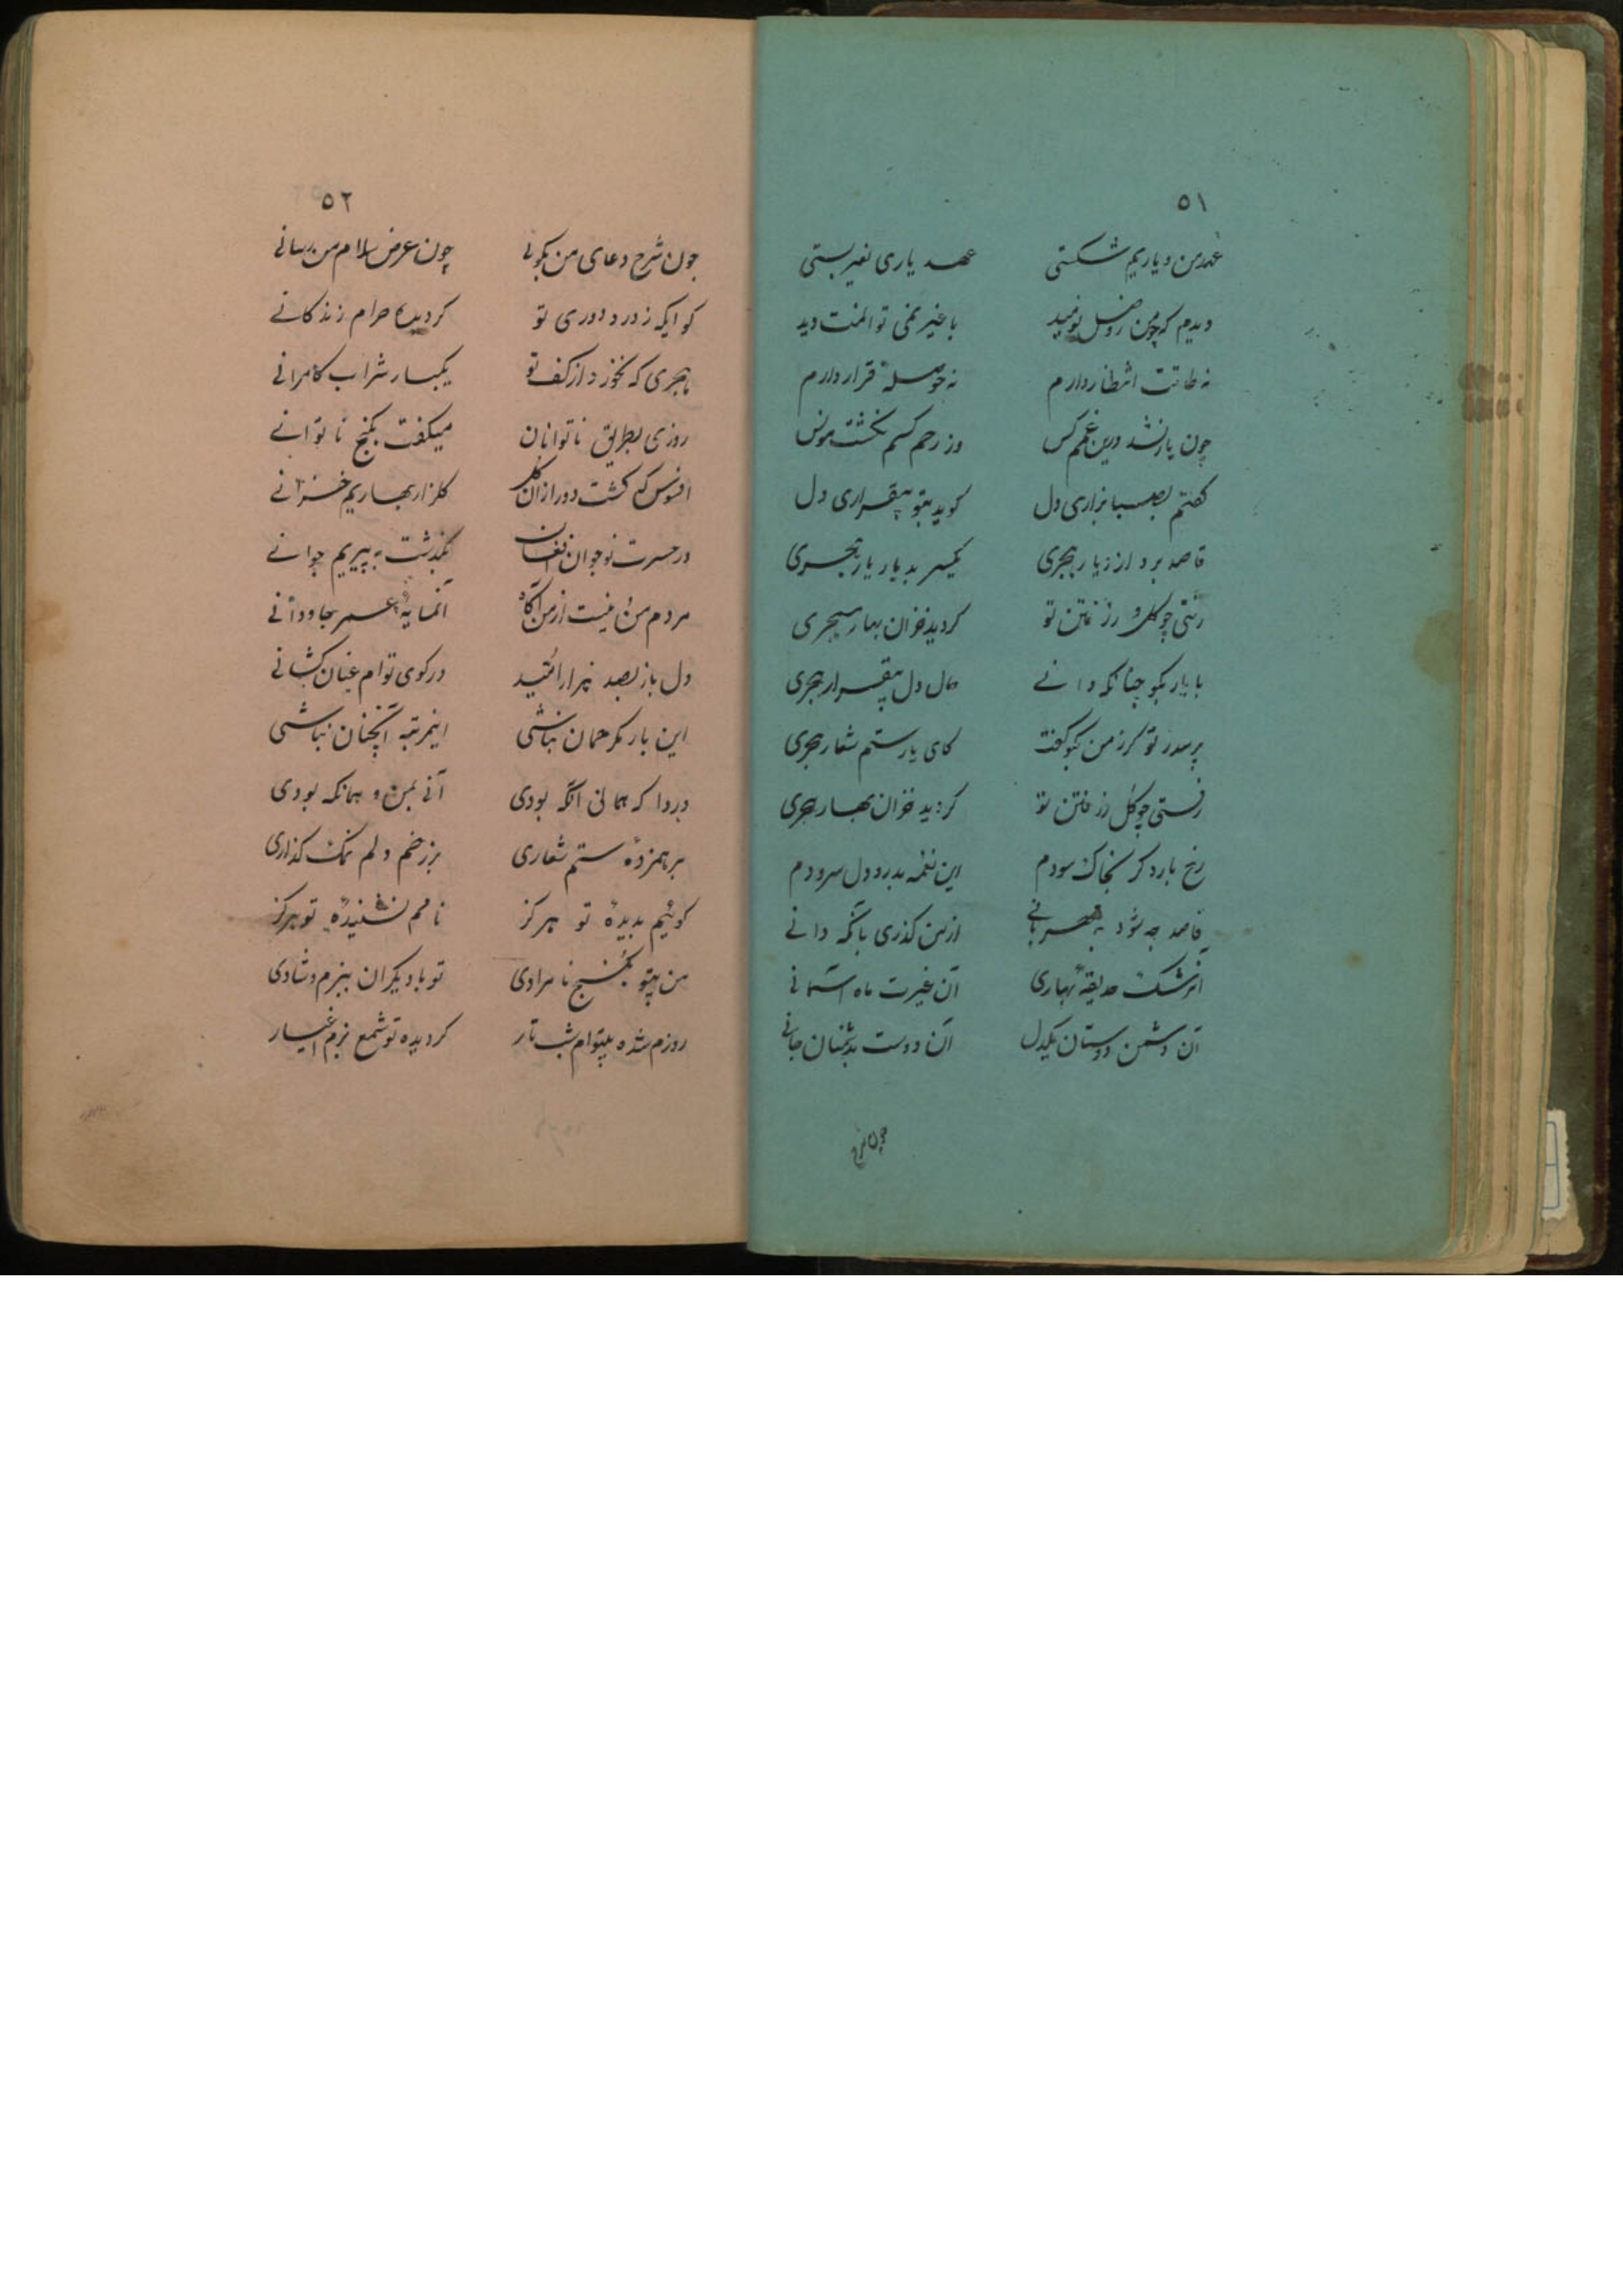 ٥١
عهد من و یاریم شکستی عهد یاری بغیر بستی
دیدم که چو من ز وصل نومید با غیر نمی توانمت دید
نه طاقت انتظار دارم نه حوصلهٔ قرار دارم
چون یار نشد درین غمم کس وز رحم کسم نگشت مونس
گفتم بصبا بزاری دل گوید بتو بیقراری دل
قاصد برد ار ز یار هجری یکسر بدیار یار هجری
رفتی چو گل و ز رفتن تو گردید خزان بهار هجری
با یار بگو چنانکه دانے حال دل بیقرار هجری
پرسد ز تو گر ز من بگو گفت کای یار ستم شعار هجری
رفتی چو گل و ز رفتن تو گردید خزان بهار هجری
رخ بار دگر بخاک سودم این نغمه بدرد دل سرودم
قاصد چه شود به مهربانے از من گذری بآنکه دانے
آن رشک حدیقهٔ بهاری آن غیرت ماه آسمانے
آن دشمن دوستان یکدل آن دوست بدشمنان جانے
چون شرح
٥٢
چون شرح دعای من بگوئے چون عرض سلام من رسانے
کو ایکه ز درد دوری تو گردیده حرام زندگانے
هجری که نخورد از کف تو یکبار شراب کامرانے
روزی بطریق ناتوانان میگفت بکنج ناتوانے
افسوس که گشت دور ازان گل گلزار بهاریم خزانے
در حسرت نوجوان افغان بگذشت به پیریم جوانے
مردم من و نیست از من آگاه آنمایهٔ عمر جاودانے
دل باز بصد هزار امید در کوی توام عنان کشانے
این بار مگر همان نباشی اینمرتبه آنچنان نباشی
دردا که همانی آنکه بودی آنے بمن و همانکه بودی
بر همزدهٔ ستم شعاری بر زخم دلم نمک گذاری
کوئیم بدیدهٔ تو هرگز نامم نشنیدهٔ تو هرگز
من بیتو بکنج نامرادی تو با دیگران ببزم و شادی
روزم شده بیتوام شب تار گردیده تو شمع بزم اغیار